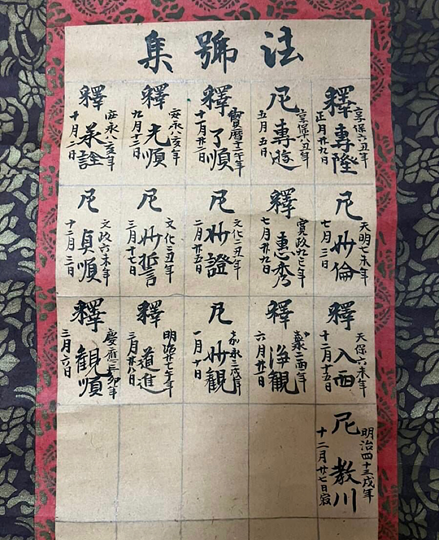 法號集
享保六丑年
釋專隆
正月廿九日
享保六丑年
尼專遊
五月五日
寶曆十二午年
釋了順
十一月廿一日
安永八亥年
釋光順
九月十二日
安永八亥年
釋榮詮
十月二日
天明七未年
尼妙倫
七月三日
寛政九巳年
釋惠秀
七月廿九日
文化二丑年
尼妙證
二月廿五日
文化二丑年
尼妙誓
三月十七日
文政六未年
尼貞順
十二月三日
天保六未年
釋入西
十二月十五日
釋浄観
六月廿一日
嘉永三戌年
尼妙観
一月十日
明治廿七午年
釋道進
三月廿八日
慶應三卯年
釋観順
三月六日
明治四十三戌年
尼教川
十二月廿七日寂